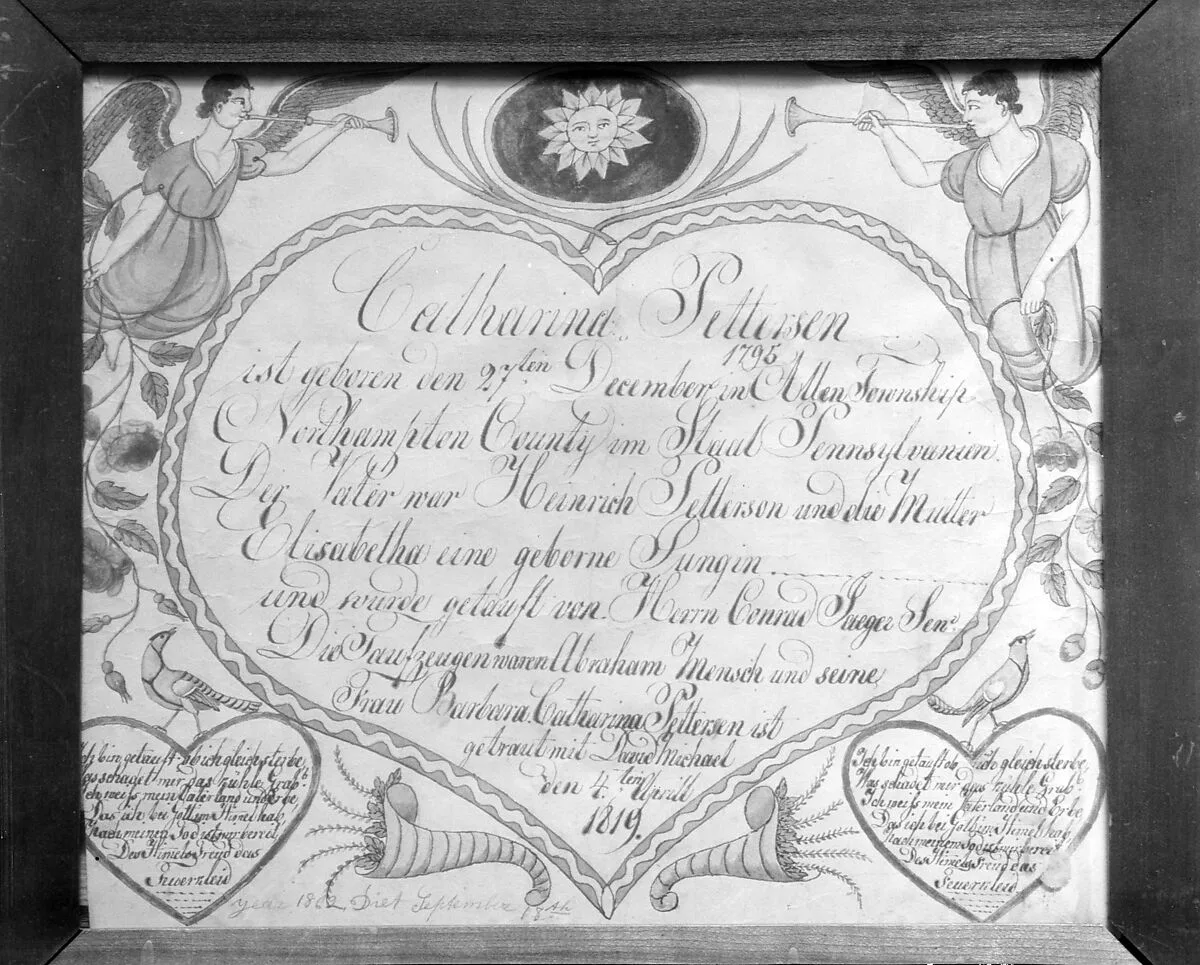 Catharina Pettersen
1795
ist geboren den 27ten December in Allen Township
Northampton County im Staat Pennsylvanien.
Der Vater war Heinrich Petterson und die Mutter
Elisabetha eine geborne Jungin
und wurde getauft von Herrn Conrad Jaeger Senr.
Die Taufzeugen waren Abraham Mensch und seine
Frau Barbara. Catharina Pettersen ist
getraut mit David Michael
den 4.ten Aprill
1819.
Ich bin getauft ob ich gleich sterbe
Was schadet mir das kühle Grab.
Ich weiss mein Vaterland und Erbe
Das ich bei Gott im Himel hab
Nach meinem Tod ist mir bereit
Des Himels Freud das
Feuerkleid
Ich bin getauft ob ich gleich sterbe
Was schadet mir das kühle Grab.
Ich weiss mein Vaterland und Erbe
Das ich bei Gott im Himel hab
Nach meinem Tod ist mir bereit
Des Himels Freud das
Feuerkleid
year 1862 Diet September 18th